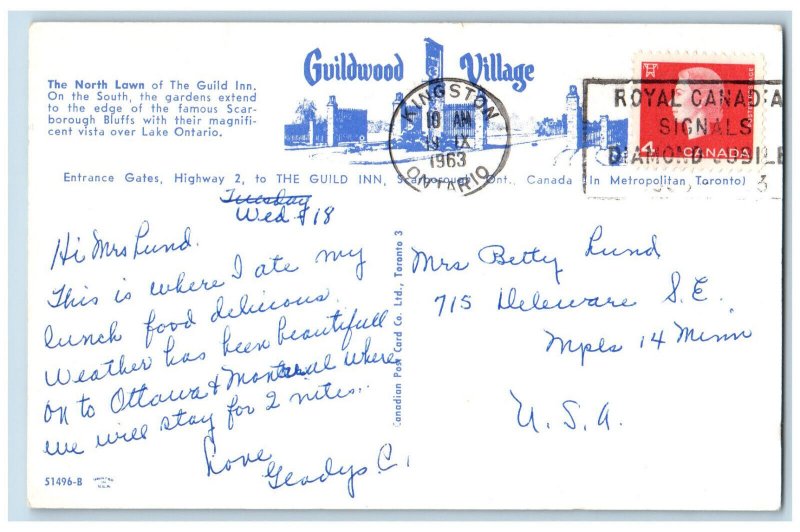 Guildwood Village
The North Lawn of The Guild Inn.
On the South, the gardens extend
to the edge of the famous Scar-
borough Bluffs with their magnifi-
cent vista over Lake Ontario.
KINGSTON
10 AM
19 IX
1963
ONTARIO
ROYAL CANADIA
SIGNALS
DIAMOND JUBILE
4 CANADA
Entrance Gates, Highway 2, to THE GUILD INN, Scarborough, Ont., Canada (In Metropolitan Toronto)
Tuesday
Wed. 18
Hi Mrs Lund.
This is where I ate my
lunch food delicious.
Weather has been beautifull
on to Ottawa & Montreal where
we will stay for 2 nites..
Love
Gladys C.
Canadian Post Card Co. Ltd., Toronto 3
Mrs Betty Lund
715 Deleware S.E.
Mpls 14 Minn
U.S.A.
51496-B